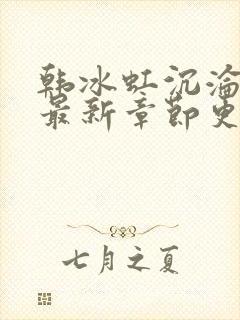 韩冰虹沉沦
最新章节更
七月之夏